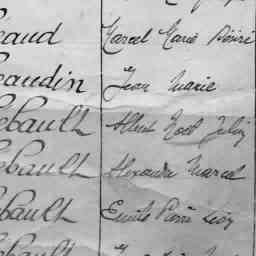 eaud Marcel Marie Désiré
eaudin Jean Marie
ebault Albert Noël Julien
ebault Alexandre Marcel
ebault Emile Pierre Léon
ebault